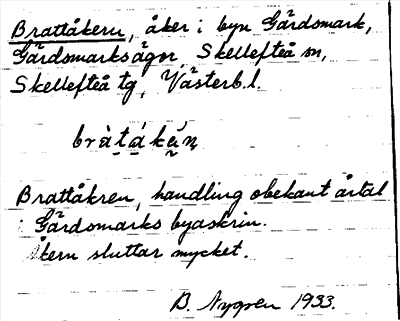 Brattåkern, åker i byn Gärdsmark,
Gärdsmarksägor, Skellefteå sn,
Skellefteå tg, Västerb.l.
Brattåkren, handling obekant årtal
i Gärdsmarks byaskrin.
Åkern sluttar mycket.
B. Nygren 1933.